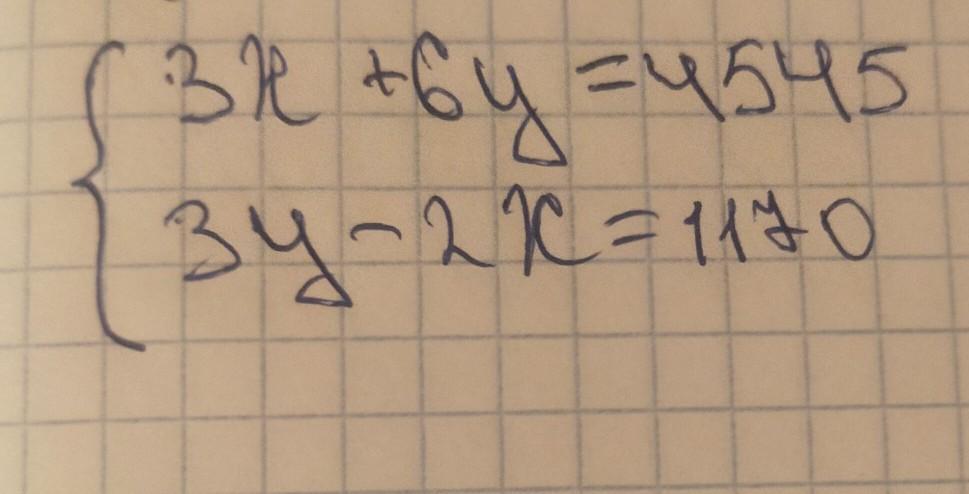 3x + 6y = 4545
3y - 2x = 1170